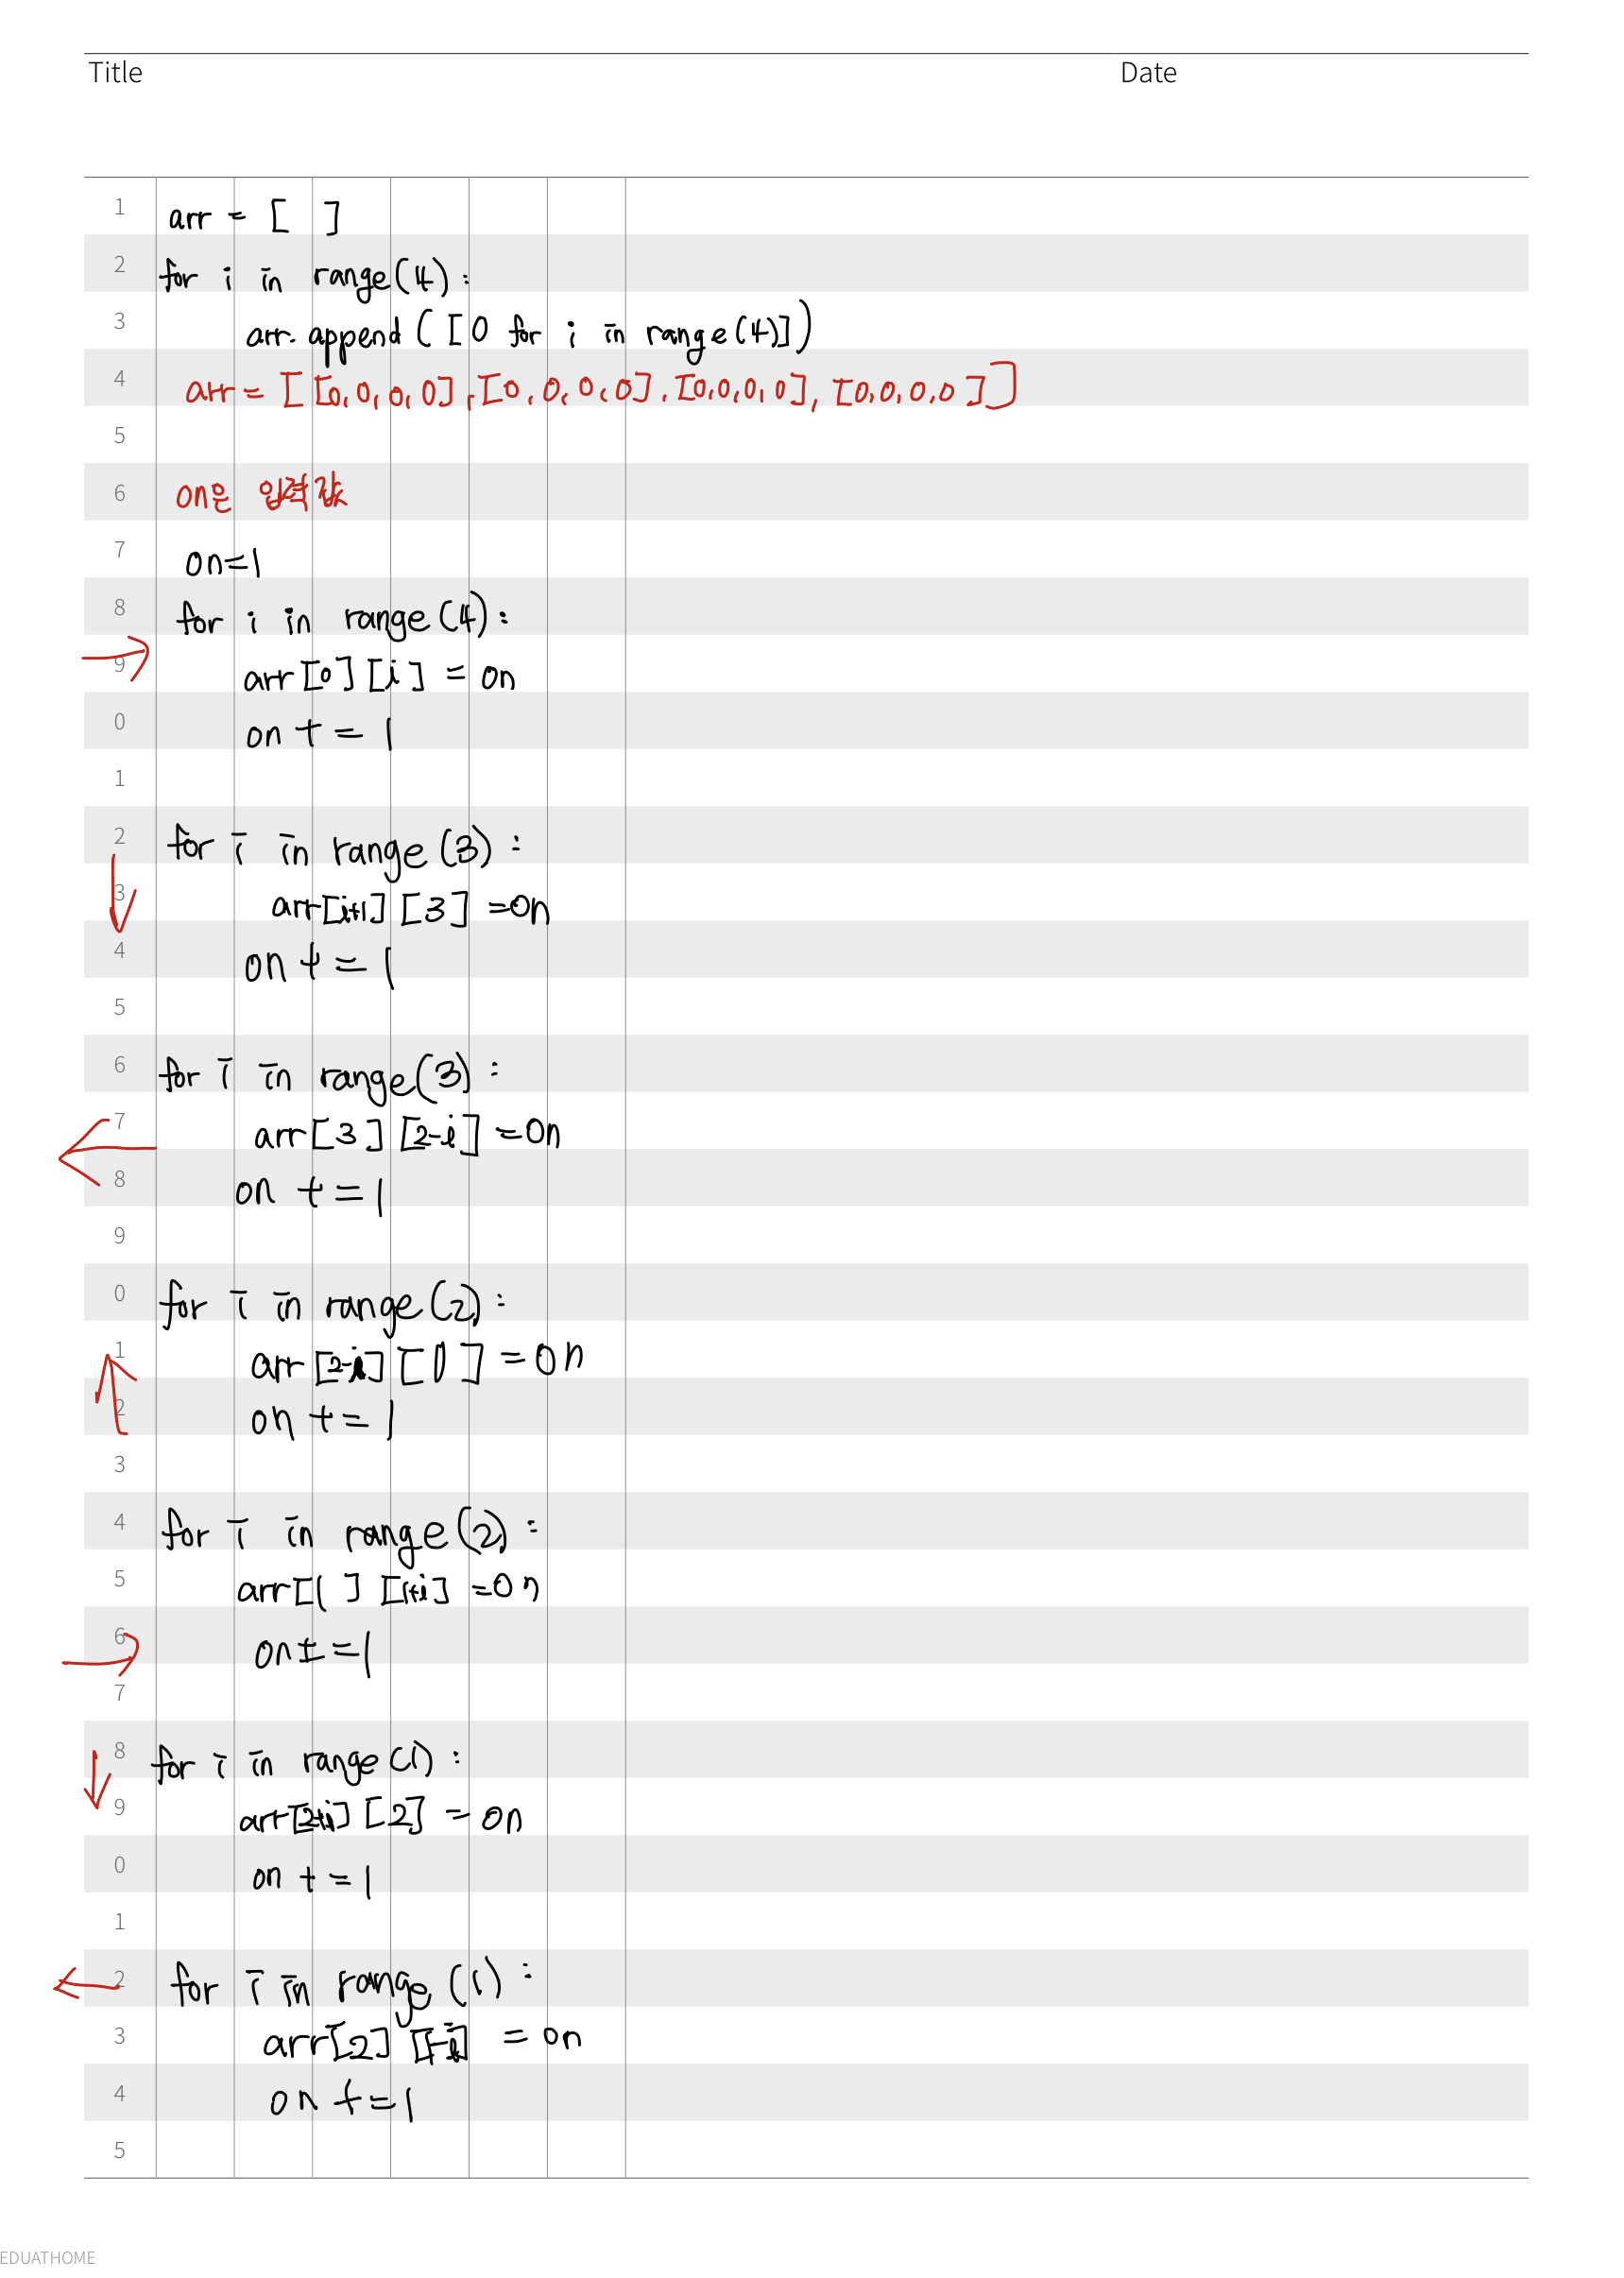 Title Date
1 arr = [ ]
2 for i in range(4):
3 arr.append([0 for i in range(4)])
4 arr = [[0,0,0,0],[0,0,0,0],[0,0,0,0],[0,0,0,0]]
5
6 on은 입력값
7 on=1
8 for i in range(4):
9 arr[0][i] = on
0 on += 1
1
2 for i in range(3):
3 arr[i+1][3] = on
4 on += 1
5
6 for i in range(3):
7 arr[3][2-i] = on
8 on += 1
9
0 for i in range(2):
1 arr[2-i][0] = on
2 on += 1
3
4 for i in range(2):
5 arr[1][1+i] = on
6 on += 1
7
8 for i in range(1):
9 arr[2+i][2] = on
0 on += 1
1
2 for i in range(1):
3 arr[2][1-i] = on
4 on += 1
5
EDUATHOME